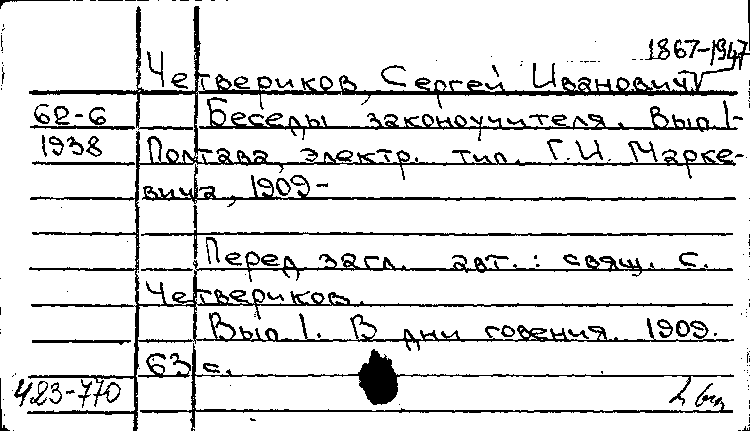 1867-1947
Четвериков, Сергей Иванович
62-6 Беседы законоучителя. Вып. 1-
1938 Полтава, электр. тип. Г.И. Марке-
вича, 1909-
Перед загл. авт.: свящ. С.
Четвериков.
Вып 1. В дни говения. 1909.
63 с.
423-770